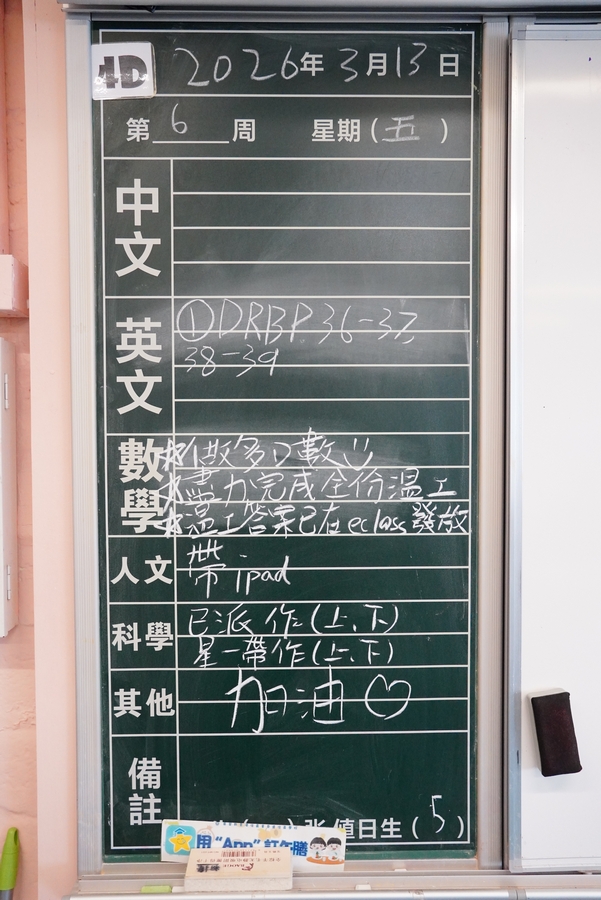 4D
2026年3月13日
第 6 周 星期(五)
中文
英文
①DRBP.36-37,
38-39
數學
*做多D數
*盡力完成全份溫工
*溫工答案已在eclass發放
人文
帶ipad
科學
已派作(上、下)
星一帶作(上、下)
其他
加油♡
備註
值日生(5)
用“App”訂午膳